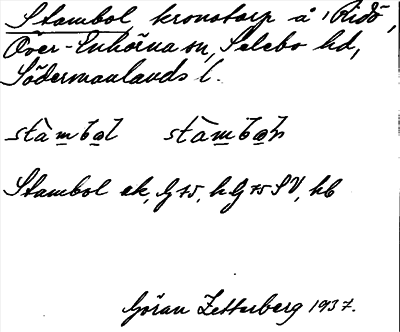 Stambol, kronotorp å Ridö,
Över-Enhörna sn, Selebo hd,
Södermanlands l.
stàmbol stàmbon
Stambol ek, G 75, hG 75 SV, hb
Göran Zetterberg 1937.